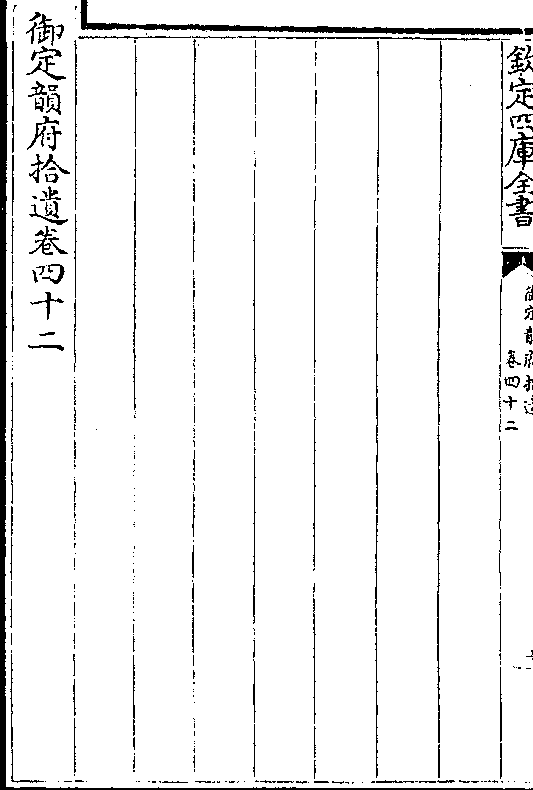 欽定四庫全書
御定韻府拾遺
卷四十二
御定韻府拾遺卷四十二